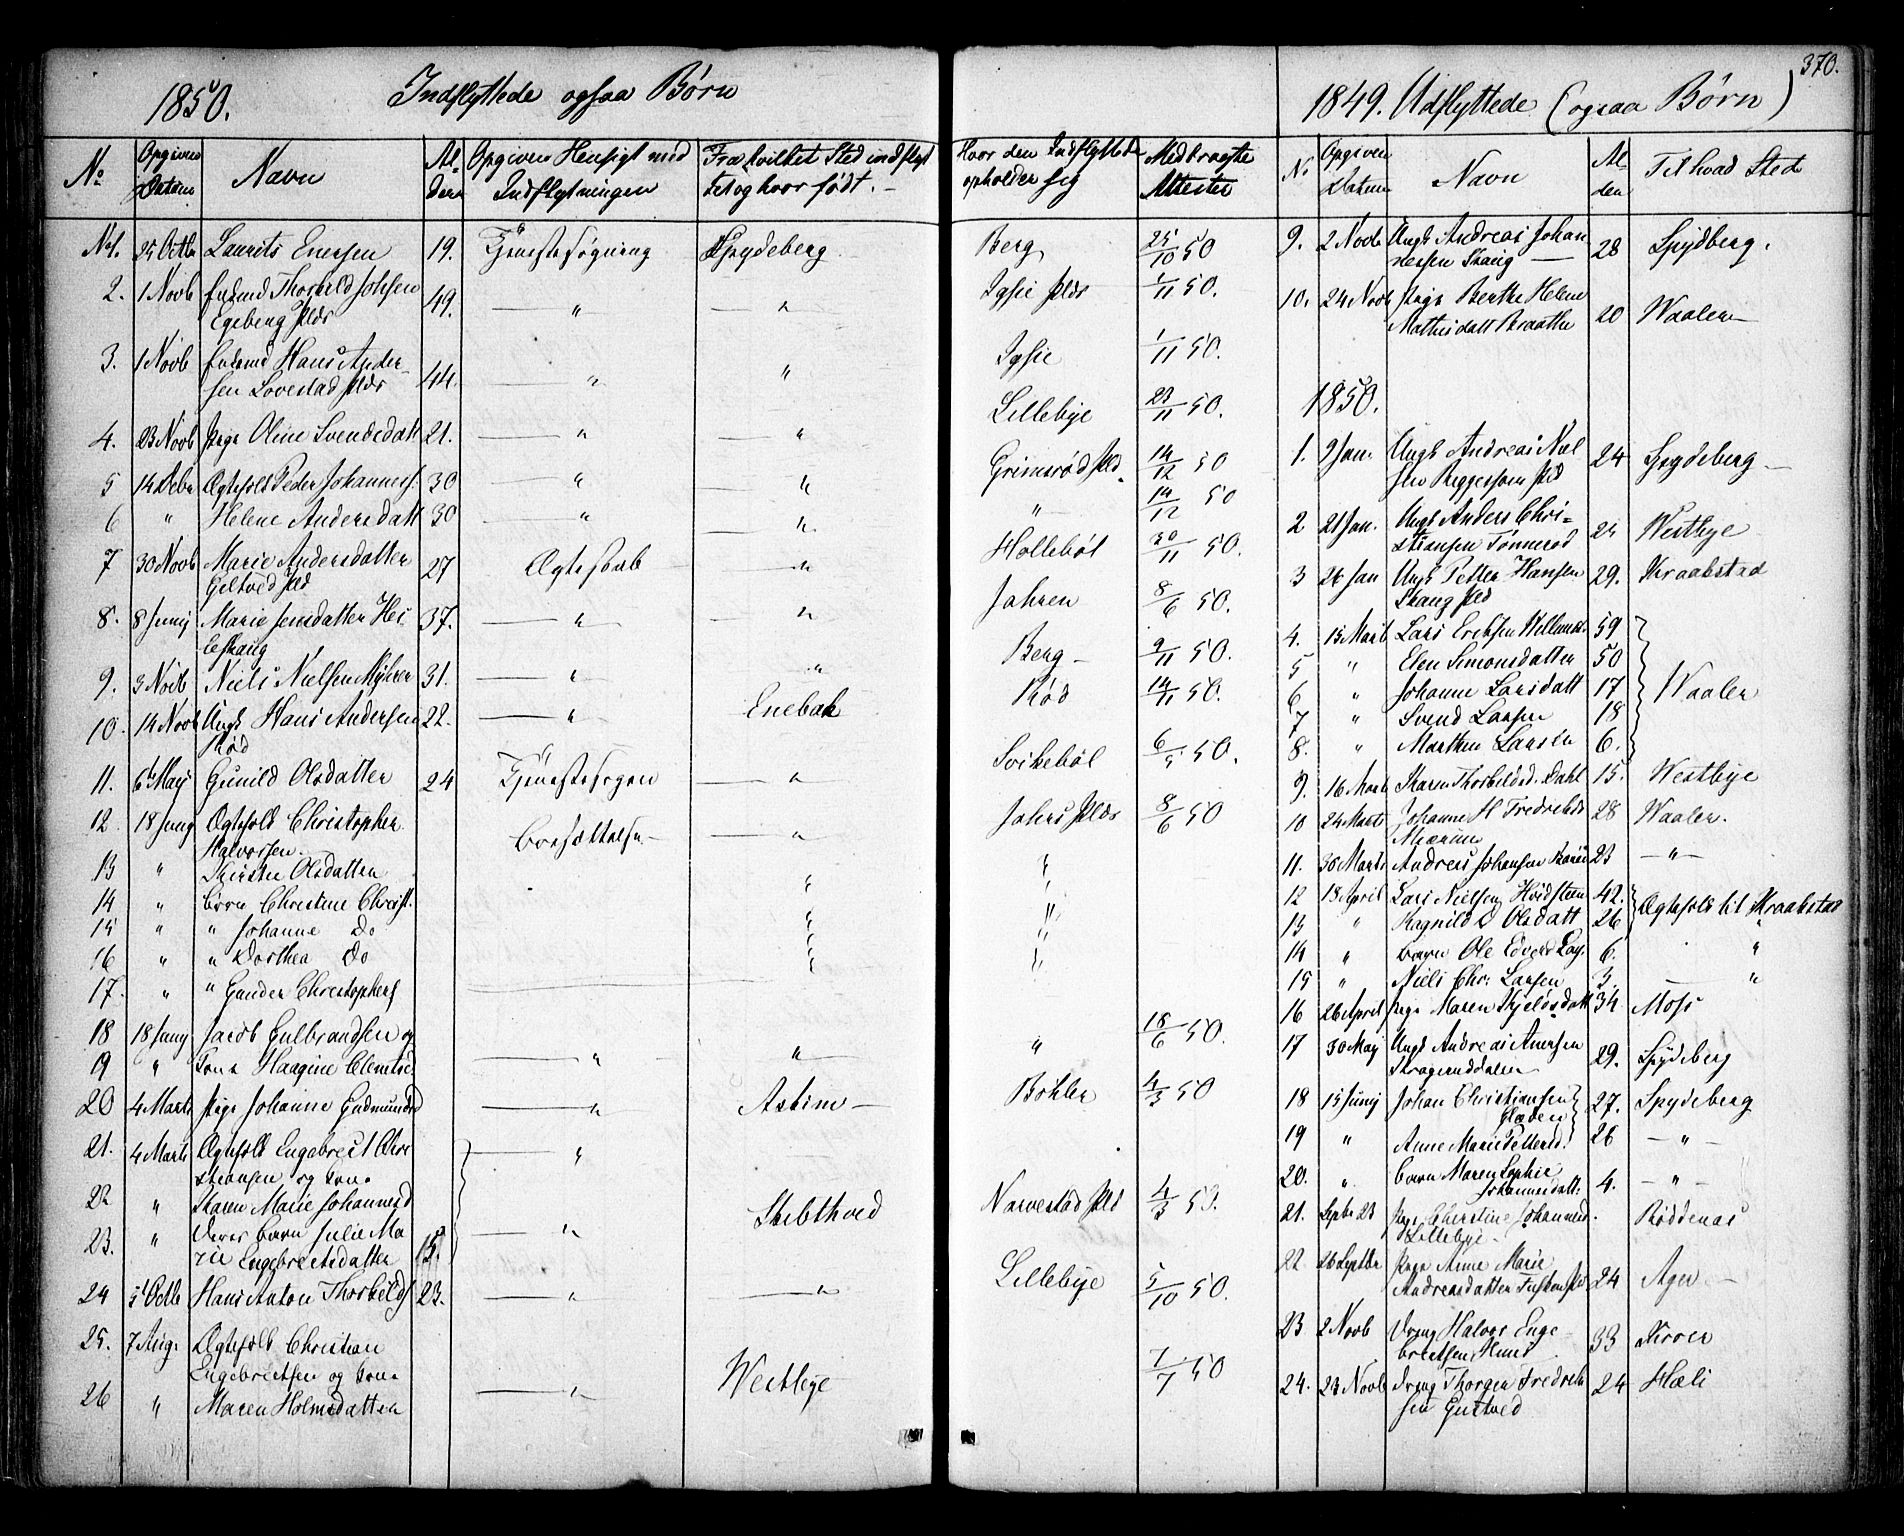 370.
1850. Indflyttede ogsaa Børn
No Opgiven Datum Navn Alderen Opgiven Hensigt med Indflytningen Fra hvilket Sted indflyttet og hvor født. Hvor den Indflyttede opholder sig Medbragte Attester
No 1. 25 Octb Laurits Enersen 19. Tjenestesøgning Spydeberg Berg 25/10 50
2. 1 Novb Thorkild Johsen 49. — " — " Igsie Plds 1/11 50.
Egeberg Plds
3. 1 Novb Hans Ander-
sen Lovestad Plds 44. — " " Igsie 1/11 50.
4. 23 Novb Pige Oline Svendsdatt 21. — " — " Lillebye 23/11 50.
5 14 Debr Ægtefolk Peder Johanness. 30 — " " Grimsrød Pld. 14/12 50
6 " Helene Andersdatt 30 — " — " " 14/12 50
7 30 Novb Marie Andersdatter 27 Ægteskab — " Hollebøl 30/11 50.
Geltved Pld
8. 8 Junij Marie Jensdatter Hei- 37. — " — " Jahren 8/6 50.
leskaug
9. 3 Novb Niels Nielsen Myhrer 31. — " — " Berg 9/11 50.
10. 14 Novb Ungk Hans Andersen 22. — " Enebak Rød 14/11 50.
Rød
11. 6te Maj Gunild Olsdatter 24 Tjenestesøgen — " Svikebøl 6/5 50.
12. 18 Juny Ægtefolk Christopher Bosættelse — " Jahrs Plds 8/6 50
Halvorsen
13 " Kirstie Olsdatter "
14 " Børn Christine Christ. "
15 " " Johanne Do "
16 " " Dorthea Do "
17. " " Gunder Christophers
18 18 Juny Jacob Gulbrandsen og " 18/6 50.
19 " Kone Haagine Clemtsd — " — "
20 4 Marts Pige Johanne Gudmundsd — " Askim — Bohler 4/3 50
21. 4 Marts Ægtefolk Engebrect Chri
stiansen og Kone — "
22 " Karen Marie Johannesd Skibthved Narvestad Pld 4/3 50.
23. " Deres Barn Julie Ma
rie Engebretsdatter 15. — "
24 5t Octb Hans Anton Thorkilds 23. — " — " Lillebye 5/10 50.
25. 7 Aug. Ægtefolk Christian
Engebretsen og Kone 7/7 50
26 " Maren Holmsdatter — " Westbye
1849. Udflyttede (ogsaa Børn)
No Opgiven Datum Navn Alderen Til hvad Sted
9. 2 Novb Ungk Andreas Johan
nessen Skaug — 28 Spydberg.
10. 24 Novb Pige Berthe Helene
Mathisdatt Braathe 20 Waaler —
1850.
1. 9 Jan. Ungk Andreas Niel
sen Pld 24 Spydeberg —
2 21 Jan. Ungk Anders Chri-
stiansen Tønnerød 24 Westbye
3 26 Jan Ungk Petter Hansen 29. Kraakstad
Skaug Pld
4. 15 Mart Lars Ericksen 59
5 " Elen Simonsdatter 50
6 " Johanne Larsdatt 17 Waaler
7 " Svend Larsen 18
8. " Marthen Larsen 6.
9. 16 Marts Karen Thorkildsd. Dahl 15. Westbye
10 24 Marts Johanne H Fredriksd 28 Waaler.
11. 30 Marts Andreas Johansen 23 — " —
12 13 April Lars Nielsen Hødsteen 42. Ægtefolk til Kraakstad
13 " Ragnild Olsdatt 26
14 " Barn Ole Edvard Lars. 6. "
15 " Niels Chr. Larsen 3. — "
16 26 April Pige Maren Kjeløsdatt 34. Moss
17 30 Maj Ungk Andreas Anersen
Kragsruddalen 29. Spydeberg
18 15 Junij Johan Christiansen 27. Spydeberg
19 " Anne Marie Pettersd. 26 — " —
20. " Barn Maren Sophie
Johannesdatt. 4. — " —
21. Septbr 23 Pige Cherstine Johannesd. Røddenas
Lillebye.
22 26 Septbr Pige Anne Marie
Andreasdatter 24 Ager —
23 2 Novb Dreng Halvor Enge
bretsen 33 Kroer
24. 23 Novb Dreng Thorger Fredrik 24 Høli
sen Gustved